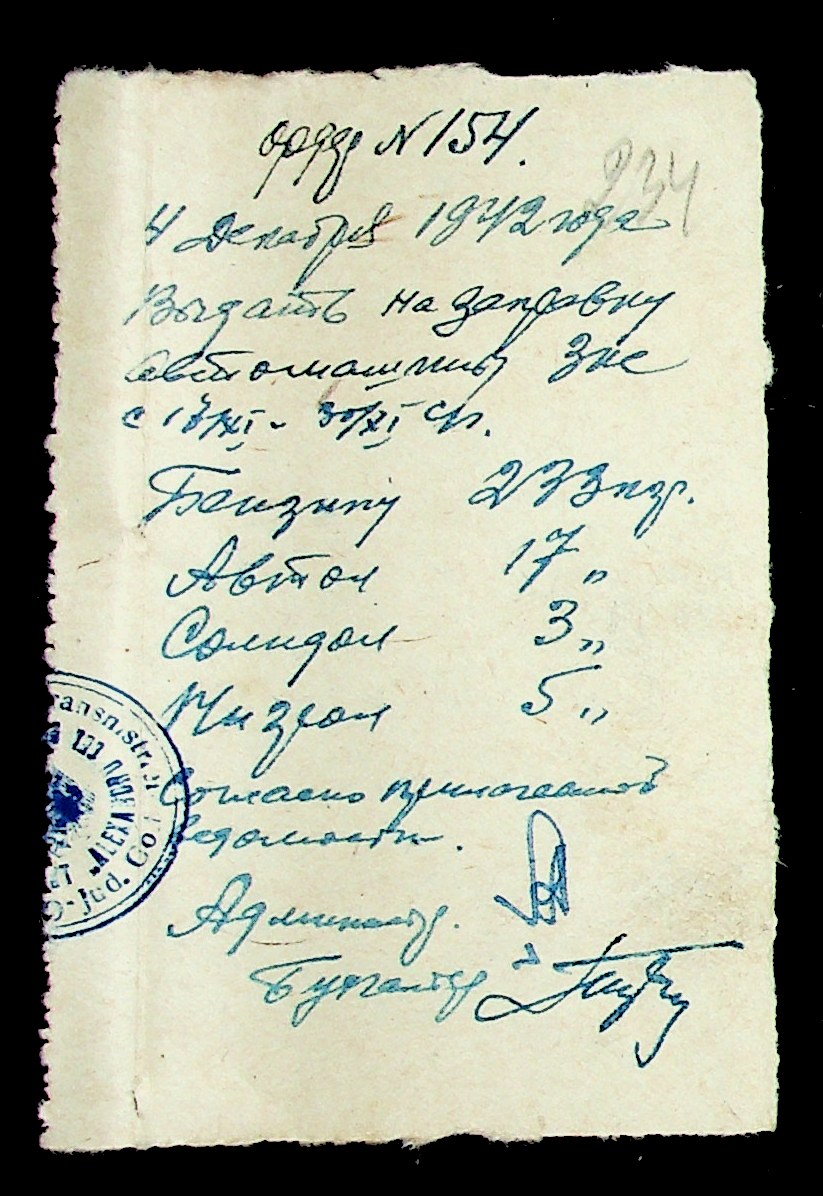 ордер N 154.
234
4 декабря 1942 года
Выдать на заправку
автомашины Зис
с 17/XI - 30/XI см.
Бензину 233 кгр.
Автол 17 "
Солидол 3 "
Нигрол 5 "
Согласно приложеной
ведомости.
Администр.
Бухгалтер
Transnistriei
ALEXANDRU
Jud. Gol